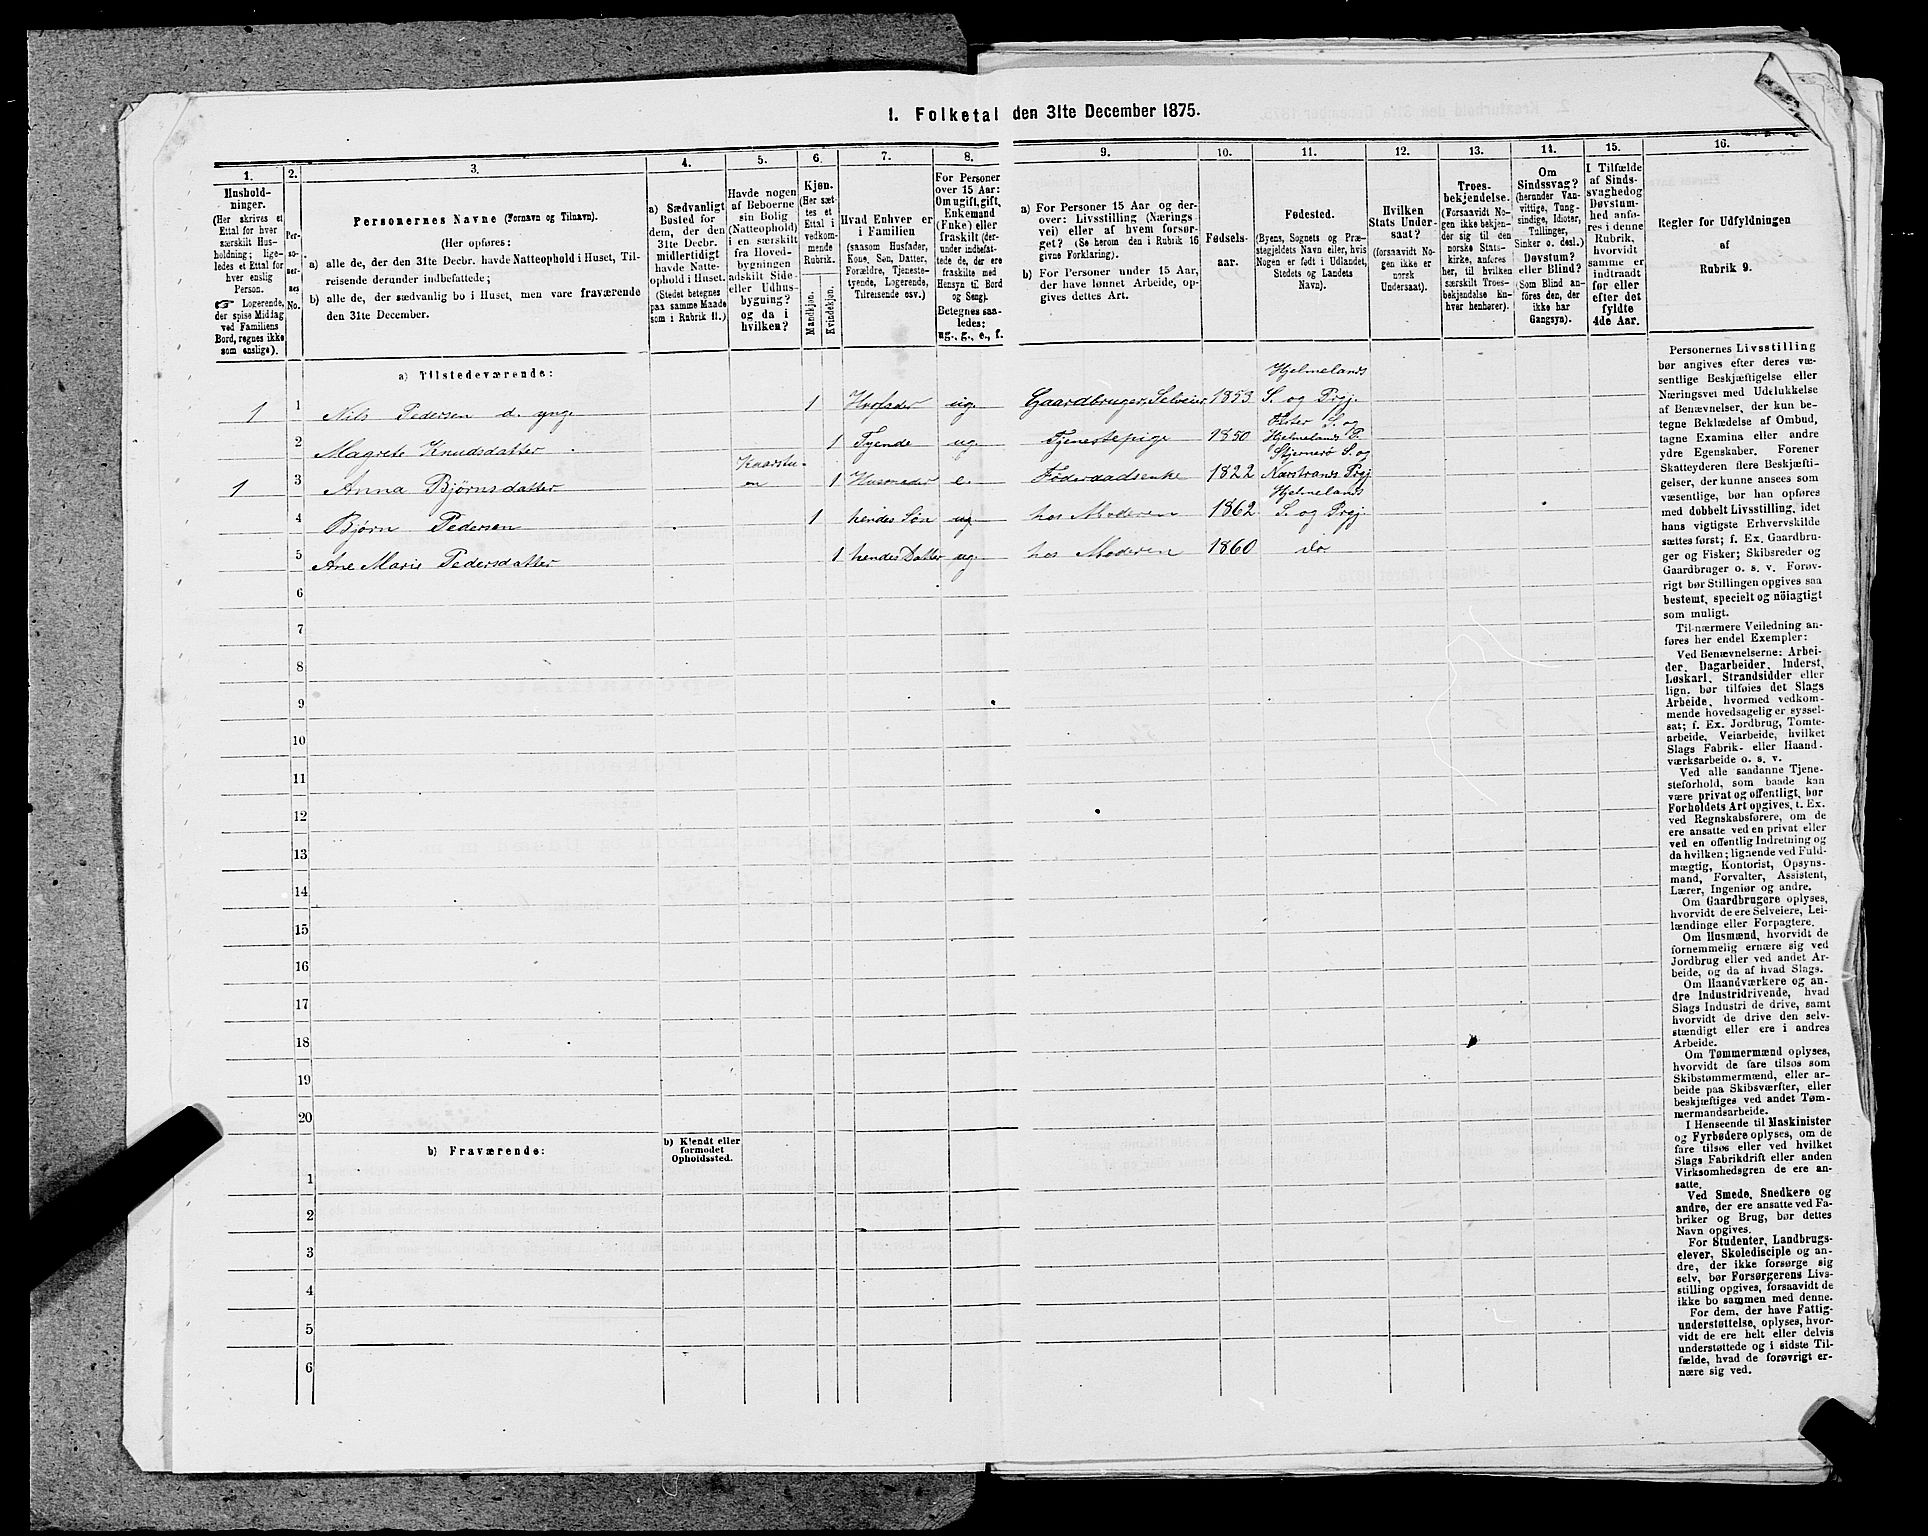 1. Folketal den 31te December 1875.
1.
2.
3.
4.
5.
6.
7.
8.
9.
10.
11.
12.
13.
14.
15.
16.
Husholdninger.
(Her skrives et
Ettal for hver
særskilt Husholdning;
ligeledes et Ettal for
hver enslig
Person.
☞ Logerende,
der spise Middag
ved Familiens
Bord, regnes ikke
som enslige).
Personernes No.
Personernes Navne (Fornavn og Tilnavn).
(Her opføres:
a) alle de, der den 31te Decbr. havde Natteophold i Huset, Tilreisende derunder indbefattede;
b) alle de, der sædvanlig bo i Huset, men vare fraværende
den 31te December.
a) Sædvanligt
Bosted for
dem, der den
31te Decbr.
midlertidigt
havde Natteophold i Huset.
(Stedet betegnes
paa samme Maade
som i Rubrik 11.)
Havde nogen
af Beboerne
sin Bolig
(Natteophold)
i en særskilt
fra Hovedbygningen
adskilt Side-
eller Udhusbygning?
og da i
hvilken?
Kjøn.
(Her sættes et
Ettal i
vedkommende
Rubrik.
Mandkjøn.
Kvindekjøn.
Hvad Enhver er
i Familien
(saasom Husfader,
Kone, Søn, Datter,
Forældre, Tjenestetyende, Logerende,
Tilreisende osv.)
For Personer
over 15 Aar:
Om ugift, gift,
Enkemand
(Enke) eller
fraskilt (derunder indbefattede de, der ere
fraskilte med
Hensyn til Bord
og Seng).
Betegnes saaledes:
ug., g., e., f.
a) For Personer 15 Aar og derover: Livsstilling (Næringsvei) eller af hvem forsørget? (Se herom den i Rubrik 16
givne Forklaring).
b) For Personer under 15 Aar,
der have lønnet Arbeide, opgives dettes Art.
Fødselsaar.
Fødested.
(Byens, Sognets og Præstegjeldets Navn eller, hvis
Nogen er født i Udlandet,
Stedets og Landets
Navn).
Hvilken
Stats Undersaat?
(forsaavidt Nogen ikke er
norsk
Undersaat).
Troesbekjendelse.
(Forsaavidt Nogen ikke bekjender sig til den
norske Statskirke, anføres
her, til hvilken
særskilt Troesbekjendelse Enhver henhører).
Om
Sindssvag?
(herunder Vanvittige, Tungsindige, Idioter,
Tullinger,
Sinker o. desl.)
Døvstum?
eller Blind?
(Som Blind anføres den, der
ikke har
Gangsyn).
I Tilfælde
af Sindssvaghed og
Døvstumhed anføres i denne
Rubrik,
hvorvidt
samme er
indtraadt
før eller
efter det
fyldte
4de Aar.
Regler for Udfyldningen
af
Rubrik 9.
a) Tilstedeværende:
1 1 Nils Pedersen d. yngr 1 Husfader ug. Gaardbruger, Selveier 1853 Hjelmelands S. og Prgj.
2 Magrete Knudsdatter 1 Tyende ug. Tjenestepige 1850 S. og Hjelmelands P.
1 3 Anna Bjørnsdatter 1 Husmoder e. Føderaadsenke 1822 Stjernerø S. og Nærstrands Prgj
4 Bjørn Pedersen 1 hendes Søn ug. hos Moderen 1862 Hjelmelands S. og Prgj.
5 Ane Marie Pedersdatter 1 hendes Datter ug. hos Moderen 1860 do.
6
7
8
9
10
11
12
13
14
15
16
17
18
19
20
b) Fraværende:
b) Kjendt eller
formodet
Opholdssted.
1
2
3
4
5
6
Personernes Livsstilling
bør angives efter deres væsentlige Beskjæftigelse eller
Næringsvei med Udelukkelse
af Benævnelser, der kun betegne Beklædelse af Ombud,
tagne Examina eller andre
ydre Egenskaber. Forener
Skatteyderen flere Beskjæftigelser, der kunne ansees som
væsentlige, bør han opføres
med dobbelt Livsstilling, idet
hans vigtigste Erhvervskilde
sættes først; f. Ex. Gaardbruger og Fisker; Skibsreder og
Gaardbruger o. s. v. Forøvrigt bør Stillingen opgives saa
bestemt, specielt og nöiagtigt
som muligt.
Til nærmere Veiledning anføres her endel Exempler:
Ved Benævnelserne: Arbeider, Dagarbeider, Inderst,
Løskarl, Strandsidder eller
lign. bør tilføies det Slags
Arbeide, hvormed vedkommende hovedsagelig er sysselsat; f. Ex. Jordbrug, Tomtearbeide, Veiarbeide, hvilket
Slags Fabrik- eller Haandværksarbeide o. s. v.
Ved alle saadanne Tjenesteforhold, som baade kan
være privat og offentligt, bør
Forholdets Art opgives, t. Ex.
ved Regnskabsførere, om de
ere ansatte ved en privat eller
ved en offentlig Indretning og
da hvilken; lignende ved Fuldmægtig, Kontorist, Opsynsmand, Forvalter, Assistent,
Lærer, Ingeniør og andre.
Om Gaardbrugere oplyses,
hvorvidt de ere Selveiere, Leilændinge eller Forpagtere.
Om Husmænd, hvorvidt de
fornemmelig ernære sig ved
Jordbrug eller ved andet Arbeide, og da af hvad Slags.
Om Haandværkere og andre Industridrivende, hvad
Slags Industri de drive, samt
hvorvidt de drive den selvstændigt eller ere i andres
Arbeide.
Om Tømmermænd oplyses,
hvorvidt de fare tilsøs som
Skibstømmermænd, eller arbeide paa Skibsværfter, eller
beskjæftiges ved andet Tømmermandsarbeide.
I Henseende til Maskinister
og Fyrbødere oplyses, om de
fare tilsøs eller ved hvilket
Slags Fabrikdrift eller anden
Virksomhedsgren de ere ansatte.
Ved Smede, Snedkere og
andre, der ere ansatte ved Fabriker og Brug, bør dettes
Navn opgives.
For Studenter, Landbrugselever, Skoledisciple og andre, der ikke forsørge sig
selv, bør Forsørgerens Livsstilling opgives, forsaavidt de
ikke bo sammen med denne.
For dem, der have Fattigunderstøttelse, oplyses, hvorvidt de ere helt eller delvis
understøttede og i sidste Tilfælde, hvad de forøvrigt ernære sig ved.